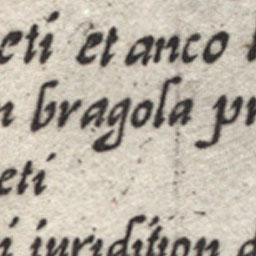 eti et anco
n bragola pr
eti
i iuridition d